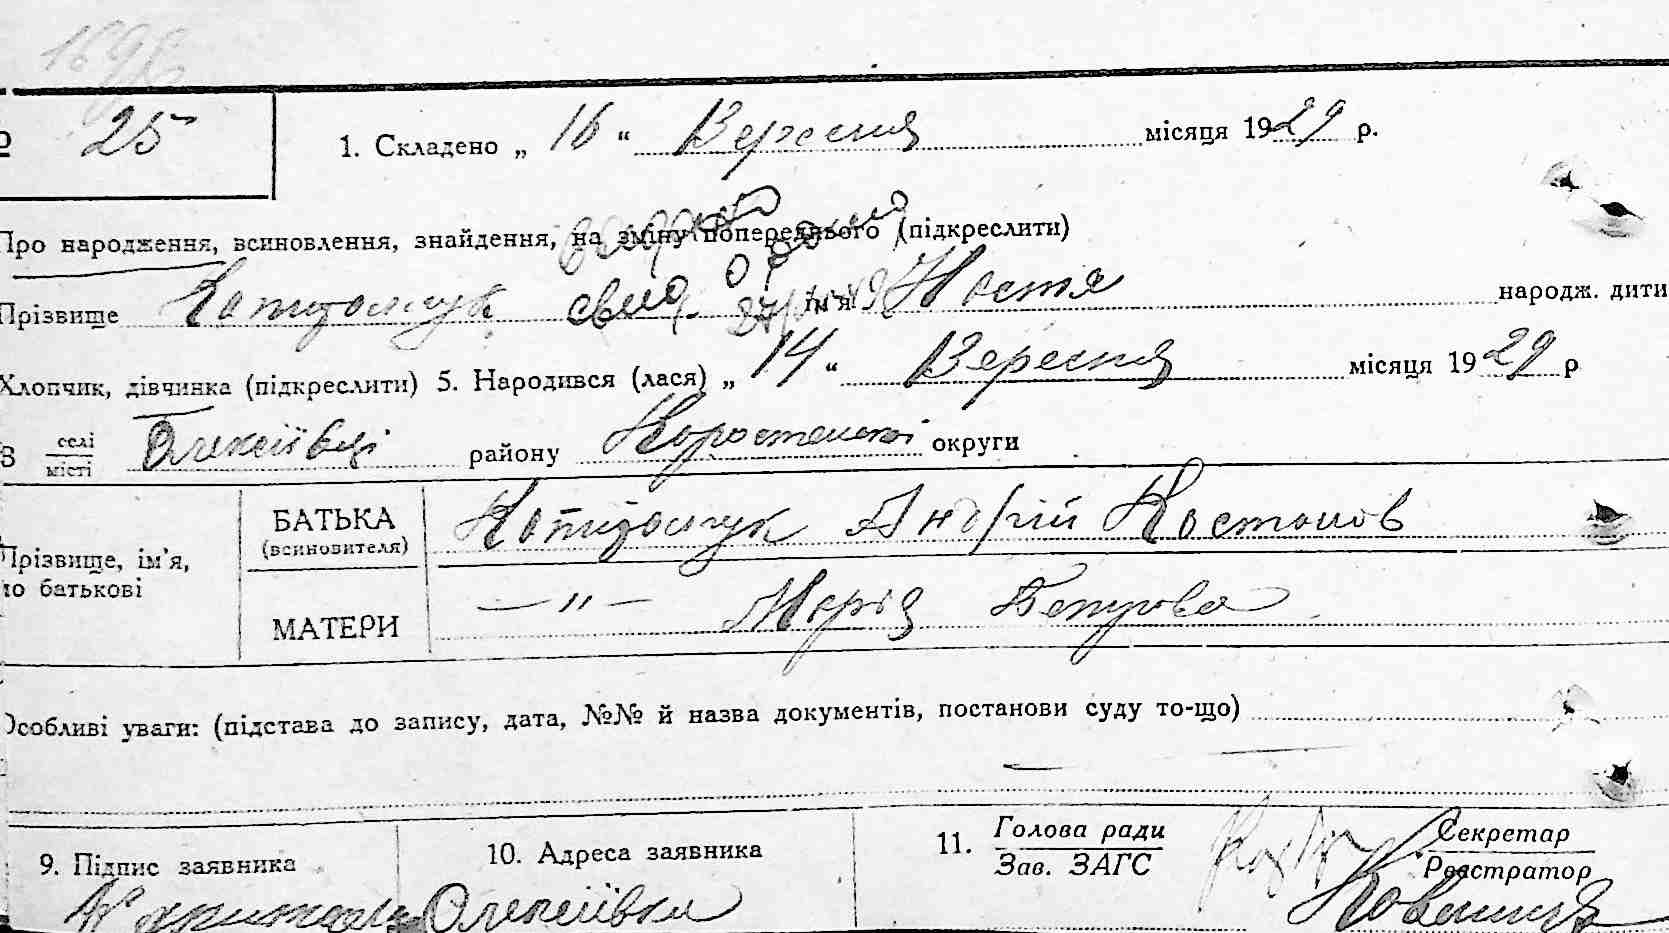 1896
25
1. Складено „ 16 “ Вересня місяця 1929 р.
Про народження, всиновлення, знайдення, на зміну попереднього (підкреслити)
Прізвище ім'я Настя народж. дити
Хлопчик, дівчинка (підкреслити) 5. Народився (лася) „ 14 “ Вересня місяця 1929 р
В селі Олексіївці району округи
місті
БАТЬКА Андрій
(всиновителя)
Прізвище, ім'я,
по батькові
МАТЕРИ — " — Марія
Особливі уваги: (підстава до запису, дата, №№ й назва документів, постанови суду то-що)
9. Підпис заявника 10. Адреса заявника 11. Голова ради Секретар
Зав. ЗАГС Реєстратор
Олексіївка